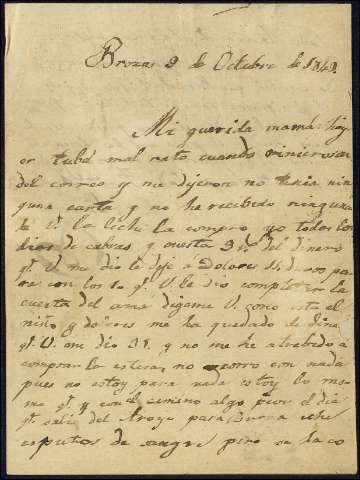 Brozas 9 de Octubre de 1849.
Mi querida mamá: hoy
er tube mal rato cuando vinieron
del correo y me dijeron no tenia nin
guna carta y no he recibido ninguna
de V. la leche la compro yo todos los
dias de cabras y cuesta 3 del dinero
qe. V. me dio le deje á Dolores duros pa
ra con los qe. V. le dio completar la
cuenta del ama digame V. como esta el
niño y dolores me ha quedado de dine
qe. V. me dio y no me he atrebido á
comprar la estera, no corro con nada
pues no estoy para nada estoy lo mis
mo qe. y con el camino algo peor el dia
qe. salí del Arroyo para Brozas eché
esputos de sangre pero se ha co